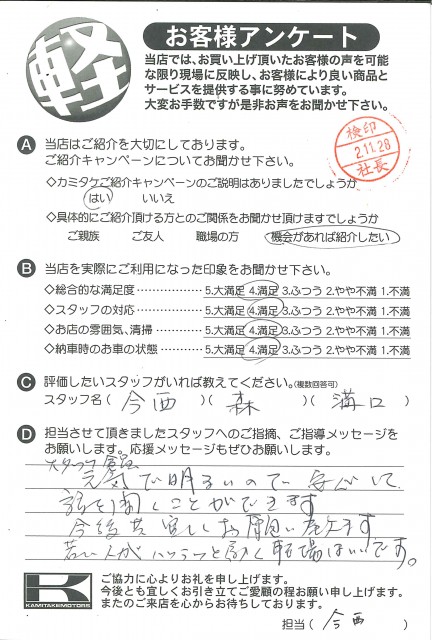 軽
お客様アンケート
当店では、お買い上げ頂いたお客様の声を可能
な限り現場に反映し、お客様により良い商品と
サービスを提供する事に努めています。
大変お手数ですが是非お声をお聞かせ下さい。
検印
2.11.26
社長
A 当店はご紹介を大切にしております。
ご紹介キャンペーンについてお聞かせ下さい。
◇カミタケご紹介キャンペーンのご説明はありましたでしょうか
はい いいえ
◇具体的にご紹介頂ける方とのご関係をお聞かせ頂けますでしょうか
ご親族 ご友人 職場の方 機会があれば紹介したい
B 当店を実際にご利用になった印象をお聞かせ下さい。
◇総合的な満足度……………… 5.大満足 4.満足 3.ふつう 2.やや不満 1.不満
◇スタッフの対応……………… 5.大満足 4.満足 3.ふつう 2.やや不満 1.不満
◇お店の雰囲気、清掃………… 5.大満足 4.満足 3.ふつう 2.やや不満 1.不満
◇納車時のお車の状態………… 5.大満足 4.満足 3.ふつう 2.やや不満 1.不満
C 評価したいスタッフがいれば教えてください。(複数回答可)
スタッフ名( 今西 )( 森 )( 溝口 )
D 担当させて頂きましたスタッフへのご指摘、ご指導メッセージを
お願いします。応援メッセージもぜひお願いします。
スタッフ全員
元気で明るいので安心して
話を聞くことができます
今後共宜しくお願い致します
若い人がハツラツと働く職場はいいです。
K
KAMITAKE MOTORS
ご協力に心よりお礼を申し上げます。
今後とも宜しくお引き立てご愛顧の程お願い申し上げます。
またのご来店を心からお待ちしております。
担当( 今西 )